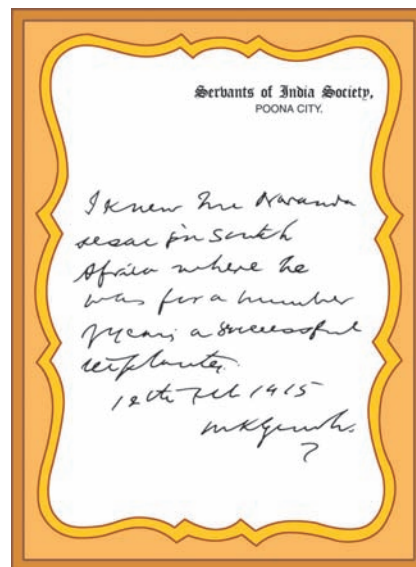 Servants of India Society,
POONA CITY.
I knew Mr
in South
Africa where he
was for a number
of years a successful
12th Feb 1915
MKGandhi